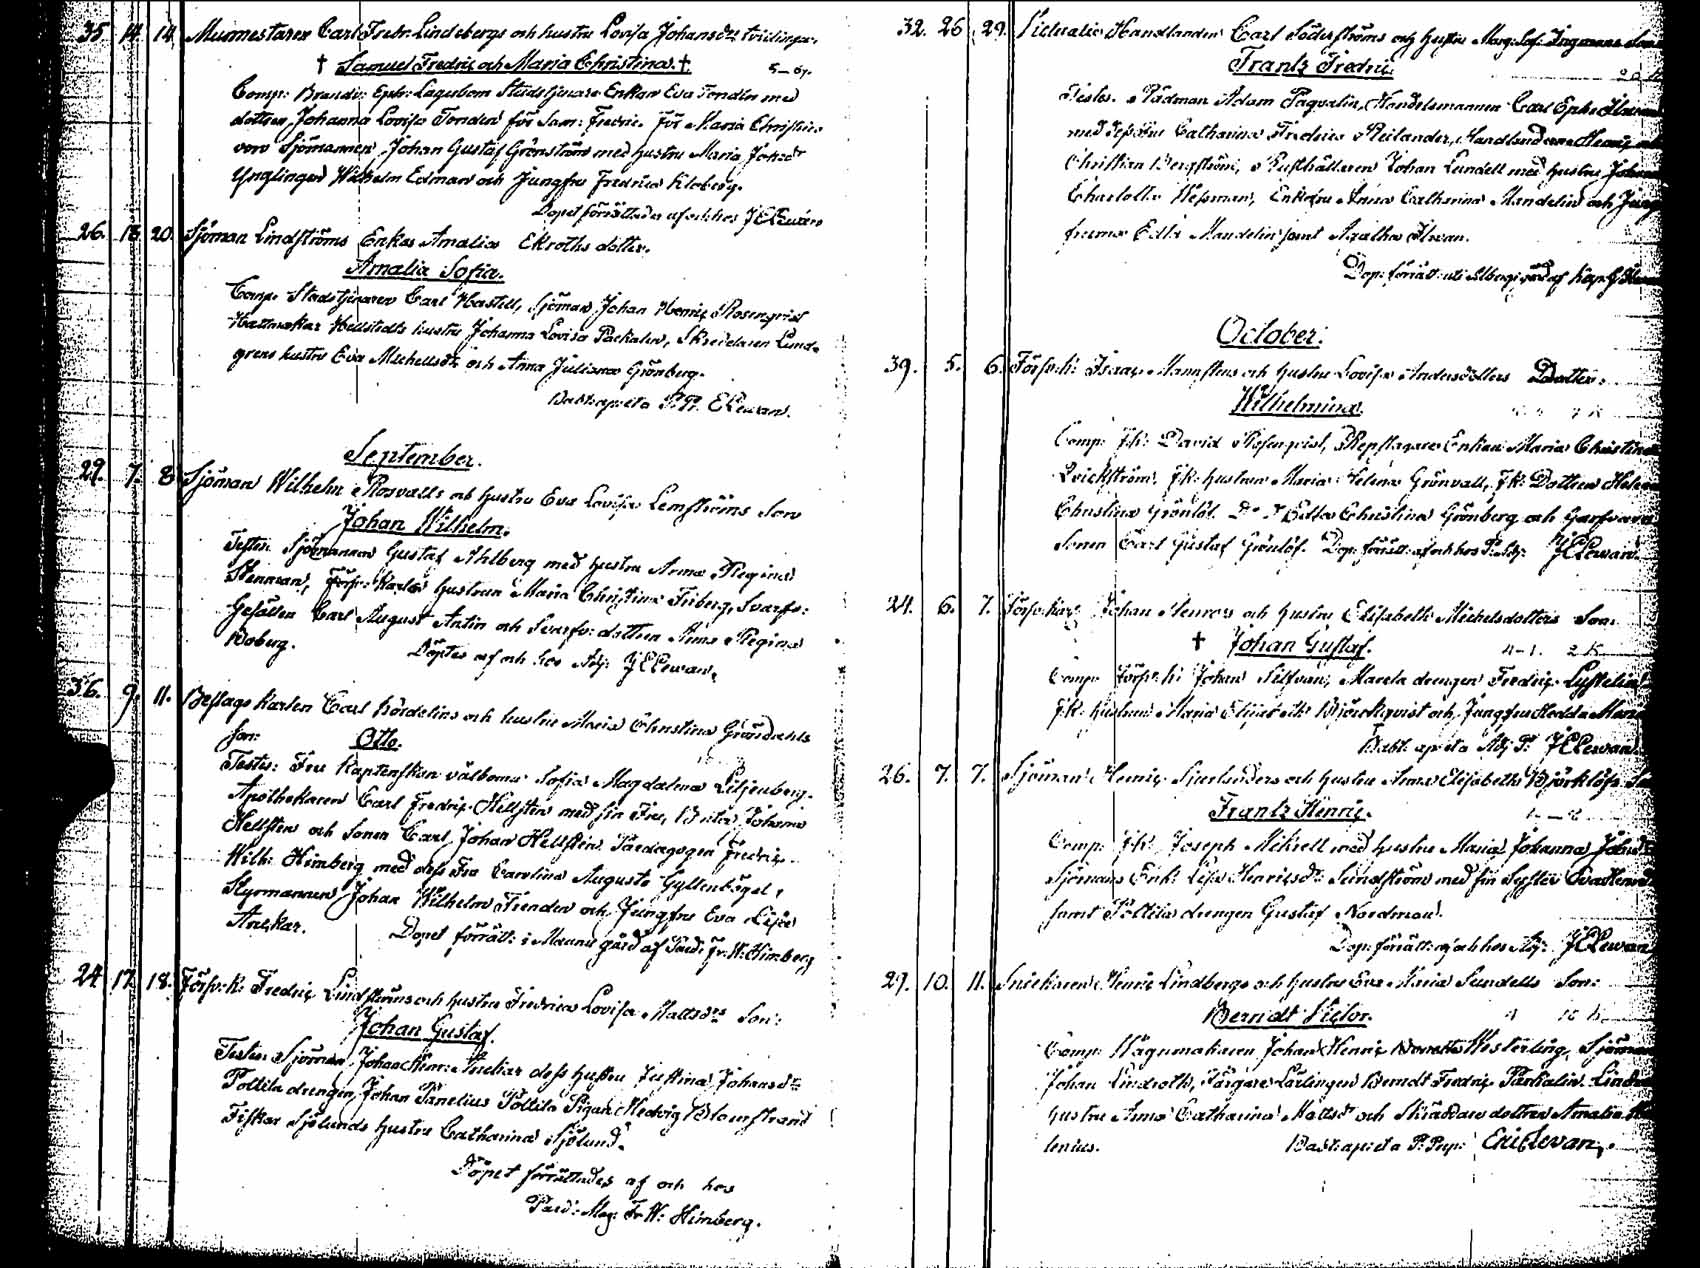 35. 14. 14. Murmestaren Carl Fredr. Lindebergs och hustru Lovisa Johansdrs tvillingar.
† Samuel Fredric och Maria Christina. †
Comp: Brandv: Eph: Lagerbom Stadstjenare Enkan Eva Tondin med
dottren Johanna Lovisa Tondin för Sam: Fredric. För Maria Christina
voro Sjömannen Johan Gustaf Grönström med hustru Maria Johsdr
Ynglingen Wilhelm Edman och Jungfru Fredrica Kloberg.
Dopet förrättades af och hos J E Lewan
26. 18 20. Sjöman Lindströms Enkas Amalia Ekroths dotter.
Amalia Sofia.
Comp. Stadstjenaren Carl Hastell, Sjöman Johan Henric Rosenqvist
Hattmakar Hellstedts hustru Johanna Lovisa Packalen, Skreddaren Lund-
grens hustru Eva Michelsdr och Anna Juliana Grönberg.
E Lewan.
September.
29. 7. 8 Sjöman Wilhelm Rosvalls och hustru Eva Lovisa Lemströms Son
Johan Wilhelm.
Testes: Sjömannen Gustaf Ahlberg med hustru Anna Regina
Stenman, Försv: Karln hustrun Maria Christina Friberg, Svarfv:
Gesällen Carl August Antin och Svarfv: dottren Anna Regina
Boberg. Döptes af och hos Adj: J E Lewan.
36. 9. 11. Beslags Karlen Carl Nordelins och hustru Maria Christina Gröndahls
son: Otto.
Testes: Fru Kaptenskan välborna Sofia Magdalena Liljenberg.
Apothekaren Carl Fredric Hellsten med sin Fru, Beata Johanna
Hellsten och Sonen Carl Johan Hellsten, Paedagogen Fredric
Wilh: Himberg med dess Fru Carolina Augusta Gyllenbögel,
Styrmannen Johan Wilhelm Trenden och Jungfru Eva Lisa
Anckar. Dopet förrätt: i Maunu gård af Paed: Fr. W. Himberg
24 17 18. Försv: k: Fredric Lindströms och hustru Fredrica Lovisa Mattsdrs Son:
Johan Gustaf.
Testes: Sjöman Johan Henr: Anckar dess hustru Justina Johansdr
Pottila drengen Johan Panelius Pottila Pigan Hedwig Blomstrand
Fiskar Sjölunds hustru Catharina Sjölund.
Döpet förrättades af och hos
Paed: Mag: Fr. W: Himberg.
32. 26 29. Victualie Handlanden Carl Söderströms och hustru Marg: Sof: Ingmans Son
Frantz Fredric.
Testes. Rådman Adam Paqvalin, Handelsmannen Carl Eph:
med dess Fru Catharina Fredrica Reilander, Handlanden Henric
Christian Bergström, Rusthållaren Johan Lundell med hustru Johanna
Charlotta Wessman, Enkefru Anna Catharina Mandelin och Jung
fruarna Edla Mandelin samt Agatha Ilwan.
Dop: förrätt:
October.
39. 5. 6. Försv: k: Isaac Mannstens och hustru Lovisa Andersdotters Dotter.
Wilhelmina.
Comp: f.k: David Rosenqvist, Repslagare Enkan Maria Christina
Qvickström, f.k: hustrun Maria Helena Grönvall, f.k: Dottren Helena
Christina Grönlöf. Do Do Edla Christina Grönberg och Garfvare
Sonen Carl Gustaf Grönlöf. Dop: förrätt: af och hos P: Adj: J E Lewan.
24. 6. 7. Försv: Karl Johan Henrics och hustru Elisabeth Michelsdotters Son.
† Johan Gustaf. 4-1. 2 K
Comp: Försv: k: Johan Silfvan, Marela drengen Fredric
f.k: hustrun Maria Elisabeth Björkqvist och Jungfru Hedda
Adj P: J E Lewan.
26. 7. 7. Sjöman Henric Sjerlanders och hustru Anna Elisabeth Björklöfs Son
Frantz Henric.
Comp: f.k: Joseph Mikrell med hustru Maria Johanna Johsdr
Sjömans Enk: Lisa Henricsdr Sundström med sin Syster Eva
samt Pottila drengen Gustaf Nordman.
Dop: förrätt: af och hos Adj: J E Lewan
29. 10. 11. Snickaren Henric Lindbergs och hustru Eva Maria Sundells Son:
Berndt Victor.
Comp: Wagnmakaren Johan Henric Westerling, Sjöman
Johan Lindroth, Färgare Lärlingen Berndt Fredric Packalin
hustru Anna Catharina Mattsdr och Skräddare dottren Amalia
lenius. Eric Levan.